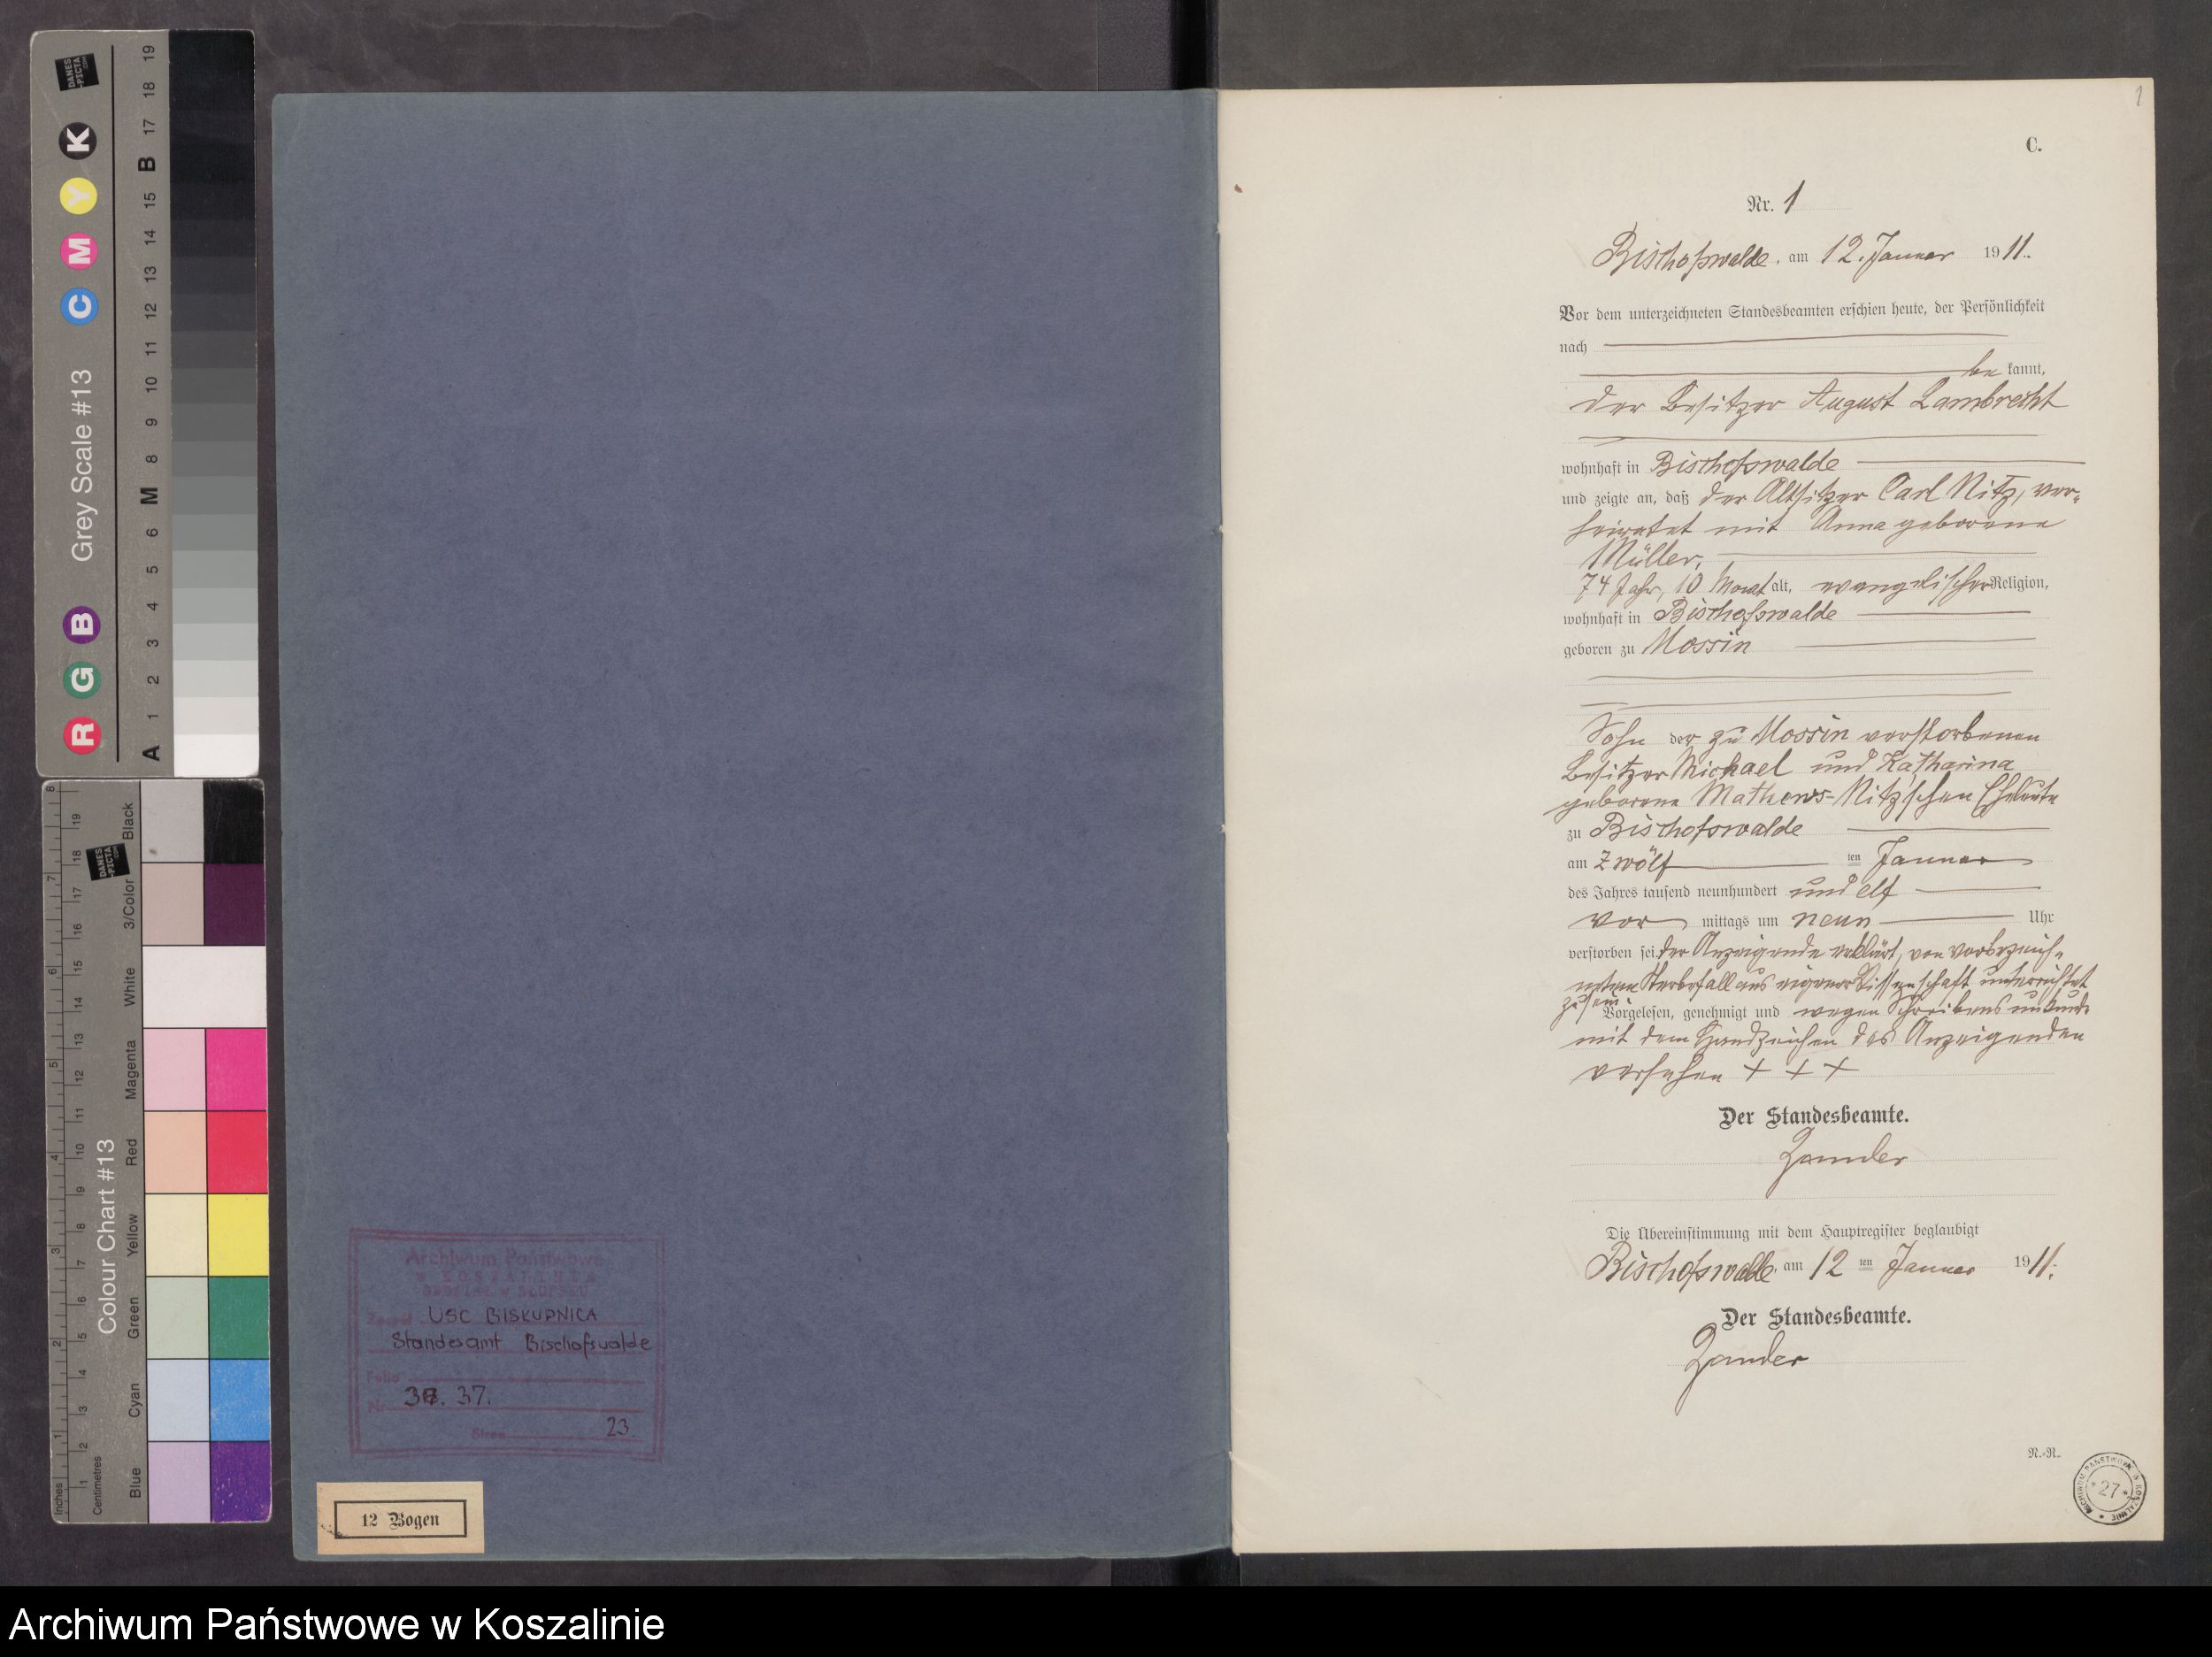 DANES PICTA .COM
R G B Grey Scale #13 C M Y K
A 1 2 3 4 5 6 M 8 9 10 11 12 13 14 15 B 17 18 19
DANES PICTA .COM
Colour Chart #13
Inches 1 2 3 4 5 6 7 8
Centimetres 1 2 3 4 5 6 7 8 9 10 11 12 13 14 15 16 17 18 19
Blue Cyan Green Yellow Red Magenta White 3/Color Black
Archiwum Państwowe
w KOSZALINIE
Zespół USC BISKUPNICA
Standesamt Bischofswalde
Folio
Nr 37.
Stron 23
12 Bogen
1
C.
Nr. 1
Bischofswalde, am 12. Januar 1911.
Vor dem unterzeichneten Standesbeamten erschien heute, der Persönlichkeit
nach
be kannt,
der Besitzer August Lambrecht
wohnhaft in Bischofswalde
und zeigte an, daß der Altsitzer Carl Nitz, ver-
heiratet mit Anna geborene
Müller,
74 Jahr, 10 Monat alt, evangelischer Religion,
wohnhaft in Bischofswalde
geboren zu Mossin
Sohn der zu Mossin verstorbenen
Besitzer Michael und Katharina
geborene Mathews-Nitz'schen Eheleute
zu Bischofswalde
am zwölf ten Januar
des Jahres tausend neunhundert und elf
vor mittags um neun Uhr
verstorben sei. der Anzeigende erklärt, von vorbezeich-
netem Sterbefall aus eigener Wissenschaft unterrichtet
zu sein.
Vorgelesen, genehmigt und wegen Schreibensunkunde
mit dem Handzeichen des Anzeigenden
versehen + + +
Der Standesbeamte.
Zander
Die Übereinstimmung mit dem Hauptregister beglaubigt
Bischofswalde, am 12 ten Januar 1911.
Der Standesbeamte.
Zander
N.-R.
ARCHIWUM PAŃSTWOWE W KOSZALINIE * 27 *
Archiwum Państwowe w Koszalinie